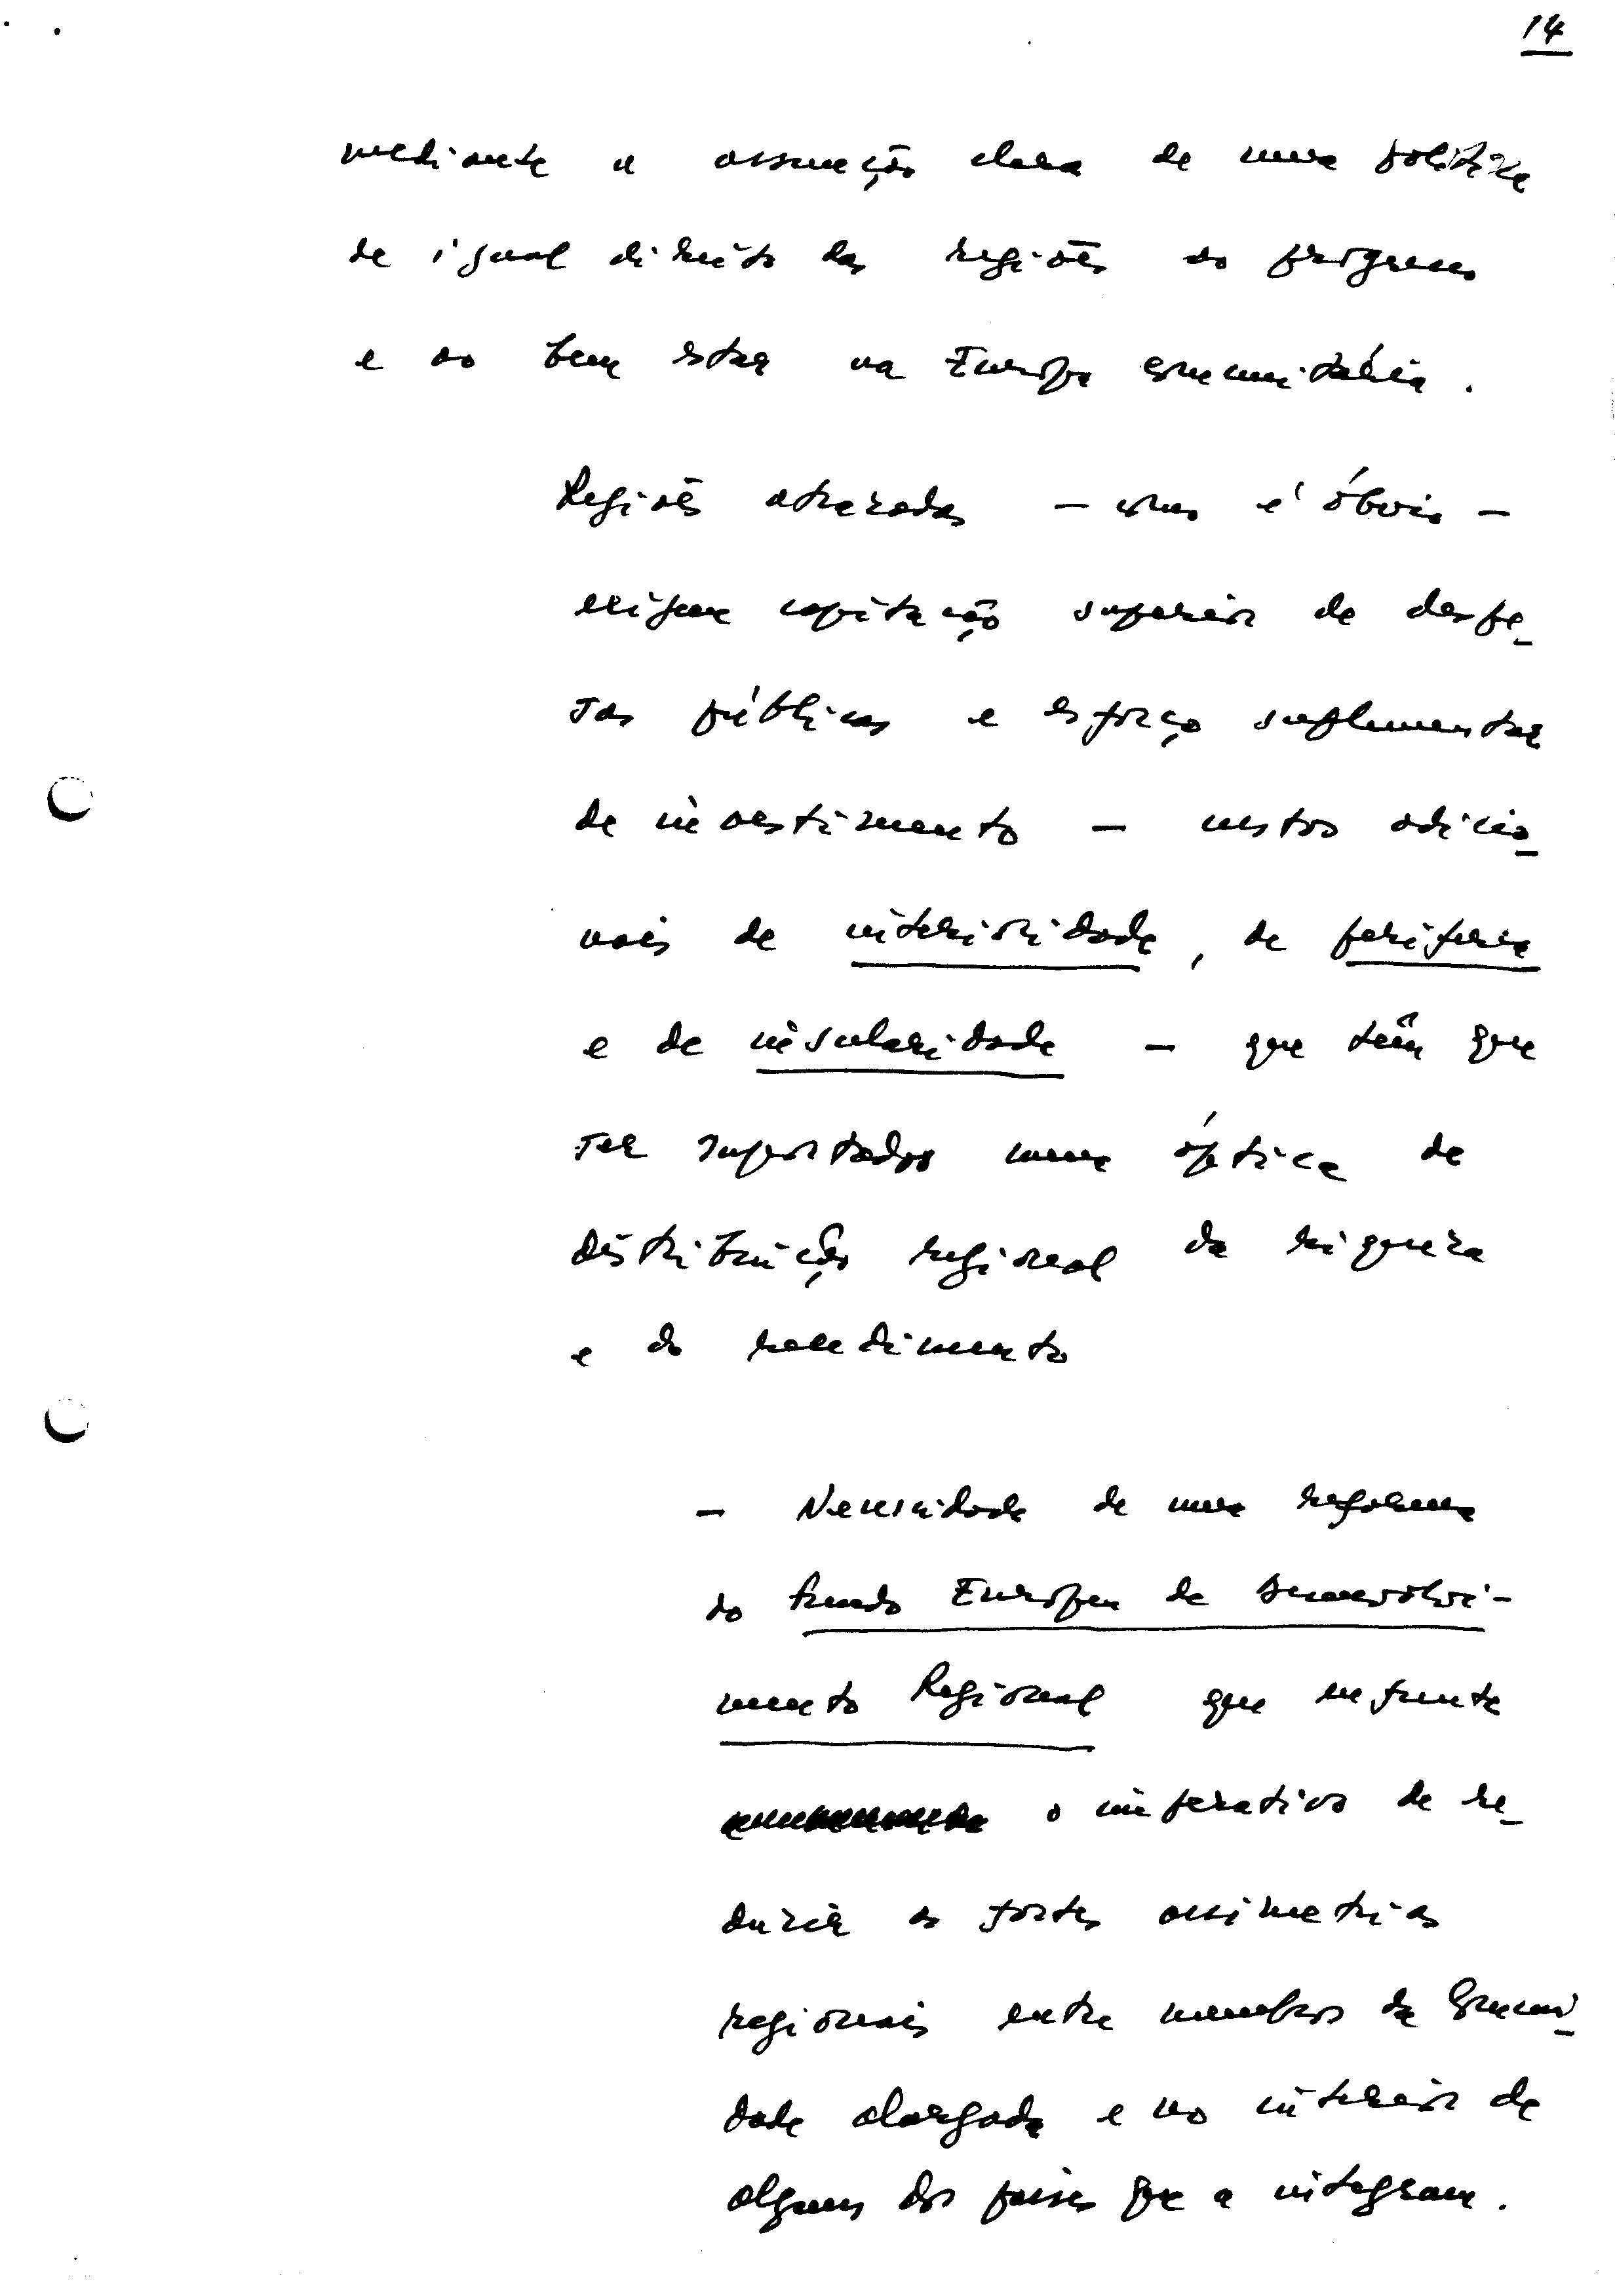 14
mediante a assunção clara de uma política
de igual direito das regiões ao progresso
e ao bem estar na Europa comunitária.
Regiões atrazadas – como é óbvio –
exigem capitação superior de despe-
sas públicas e esforço suplementar
de investimento – custos adicio-
nais de interioridade, de periferia
e de insularidade – que têm que
ser suportados numa óptica de
distribuição regional da riqueza
e do rendimento
– Necessidade de uma reforma
do Fundo Europeu de Desenvolvi-
mento Regional que enfrente
o imperativo de re-
duzir as fortes assimetrias
regionais entre membros da Comuni-
dade alargada e no interior de
alguns dos países que a integram.